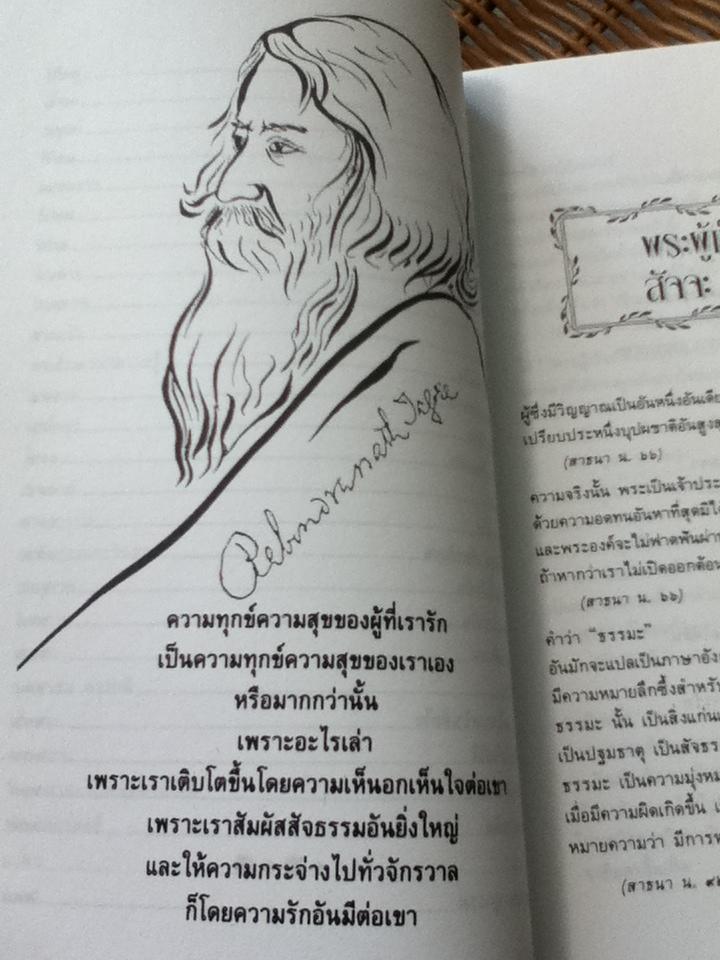 Rebindranath Tagore
ความทุกข์ความสุขของผู้ที่เรารัก
เป็นความทุกข์ความสุขของเราเอง
หรือมากกว่านั้น
เพราะอะไรเล่า
เพราะเราเติบโตขึ้นโดยความเห็นอกเห็นใจต่อเขา
เพราะเราสัมผัสสัจธรรมอันยิ่งใหญ่
และให้ความกระจ่างไปทั่วจักรวาล
ก็โดยความรักอันมีต่อเขา
สัจจะ
ผู้ซึ่งมีวิญญาณเป็นอันหนึ่งอันเดีย
เปรียบประหนึ่งบุปผชาติอันสูงส
(สาธนา น. ๖๖)
ความจริงนั้น พระเป็นเจ้าประ
ด้วยความอดทนอันหาที่สุดมิได้
และพระองค์จะไม่ฟาดฟันผ่าน
ถ้าหากว่าเราไม่เปิดออกต้อน
(สาธนา น. ๖๖)
คำว่า "ธรรมะ"
อันมักจะแปลเป็นภาษาอัง
มีความหมายลึกซึ้งสำหรั
ธรรมะ นั้น เป็นสิ่งแก่น
เป็นปฐมธาตุ เป็นสัจธร
ธรรมะ เป็นความมุ่งหม
เมื่อมีความผิดเกิดขึ้น
หมายความว่า มีการ
(สาธนา น.